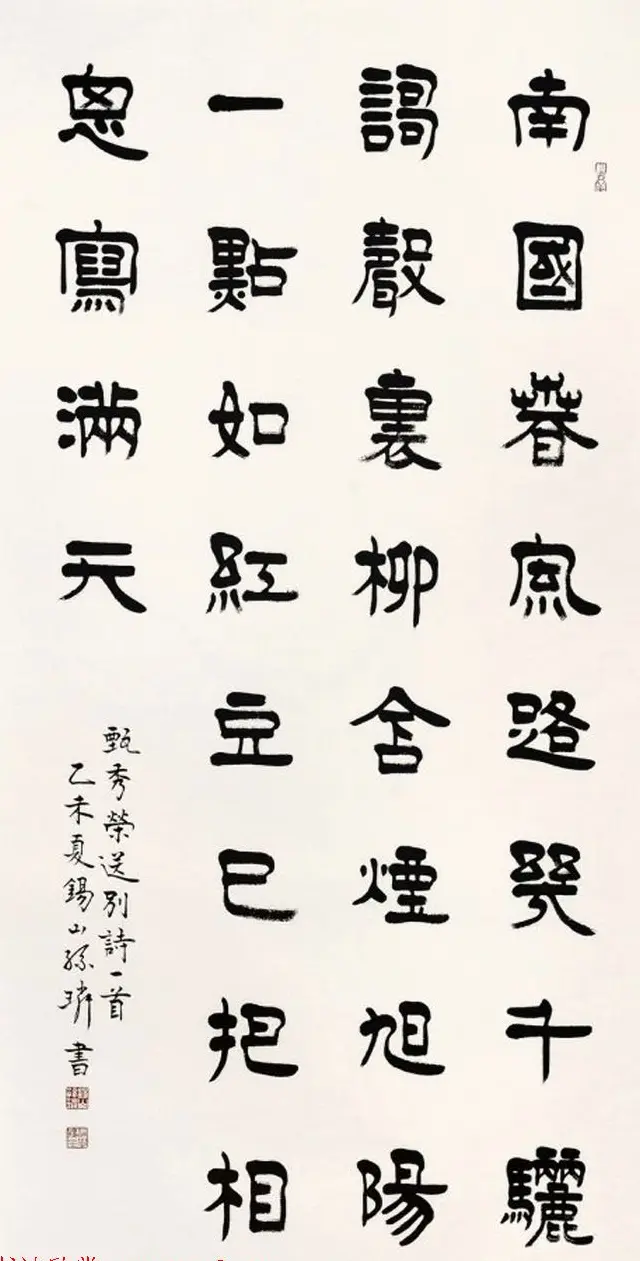 南國春風路幾千驪
謌聲裏柳含煙旭陽
一點如紅豆已把相
思寫滿天
甄秀榮送別詩一首
乙未夏錫山孫書